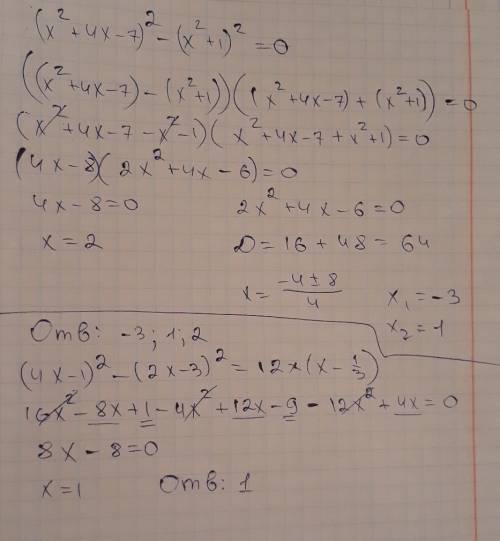 (x²+4x-7)² - (x²+1)² = 0
((x²+4x-7) - (x²+1))((x²+4x-7) + (x²+1)) = 0
(x²+4x-7-x²-1)(x²+4x-7+x²+1) = 0
(4x-8)(2x²+4x-6) = 0
4x-8=0 2x²+4x-6=0
x=2 D=16+48=64
x= (-4±8)/4 x₁=-3
x₂=1
Отв: -3; 1; 2
(4x-1)² - (2x-3)² = 12x(x-1/3)
16x²-8x+1-4x²+12x-9-12x²+4x=0
8x-8=0
x=1 Отв: 1